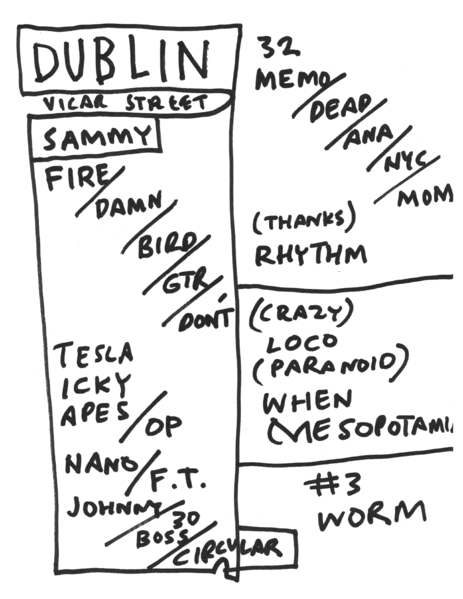 DUBLIN
VICAR STREET
SAMMY
FIRE/
DAMN/
BIRD/
GTR/
DON'T
TESLA
ICKY
APES/OP
NANO/F.T.
JOHNNY/
30
BOSS/
CIRCULAR
32
MEMO/
DEAD/
ANA/
NYC/
MOM
(THANKS)
RHYTHM
(CRAZY)
LOCO
(PARANOID)
WHEN
(MESOPOTAMIA
#3
WORM